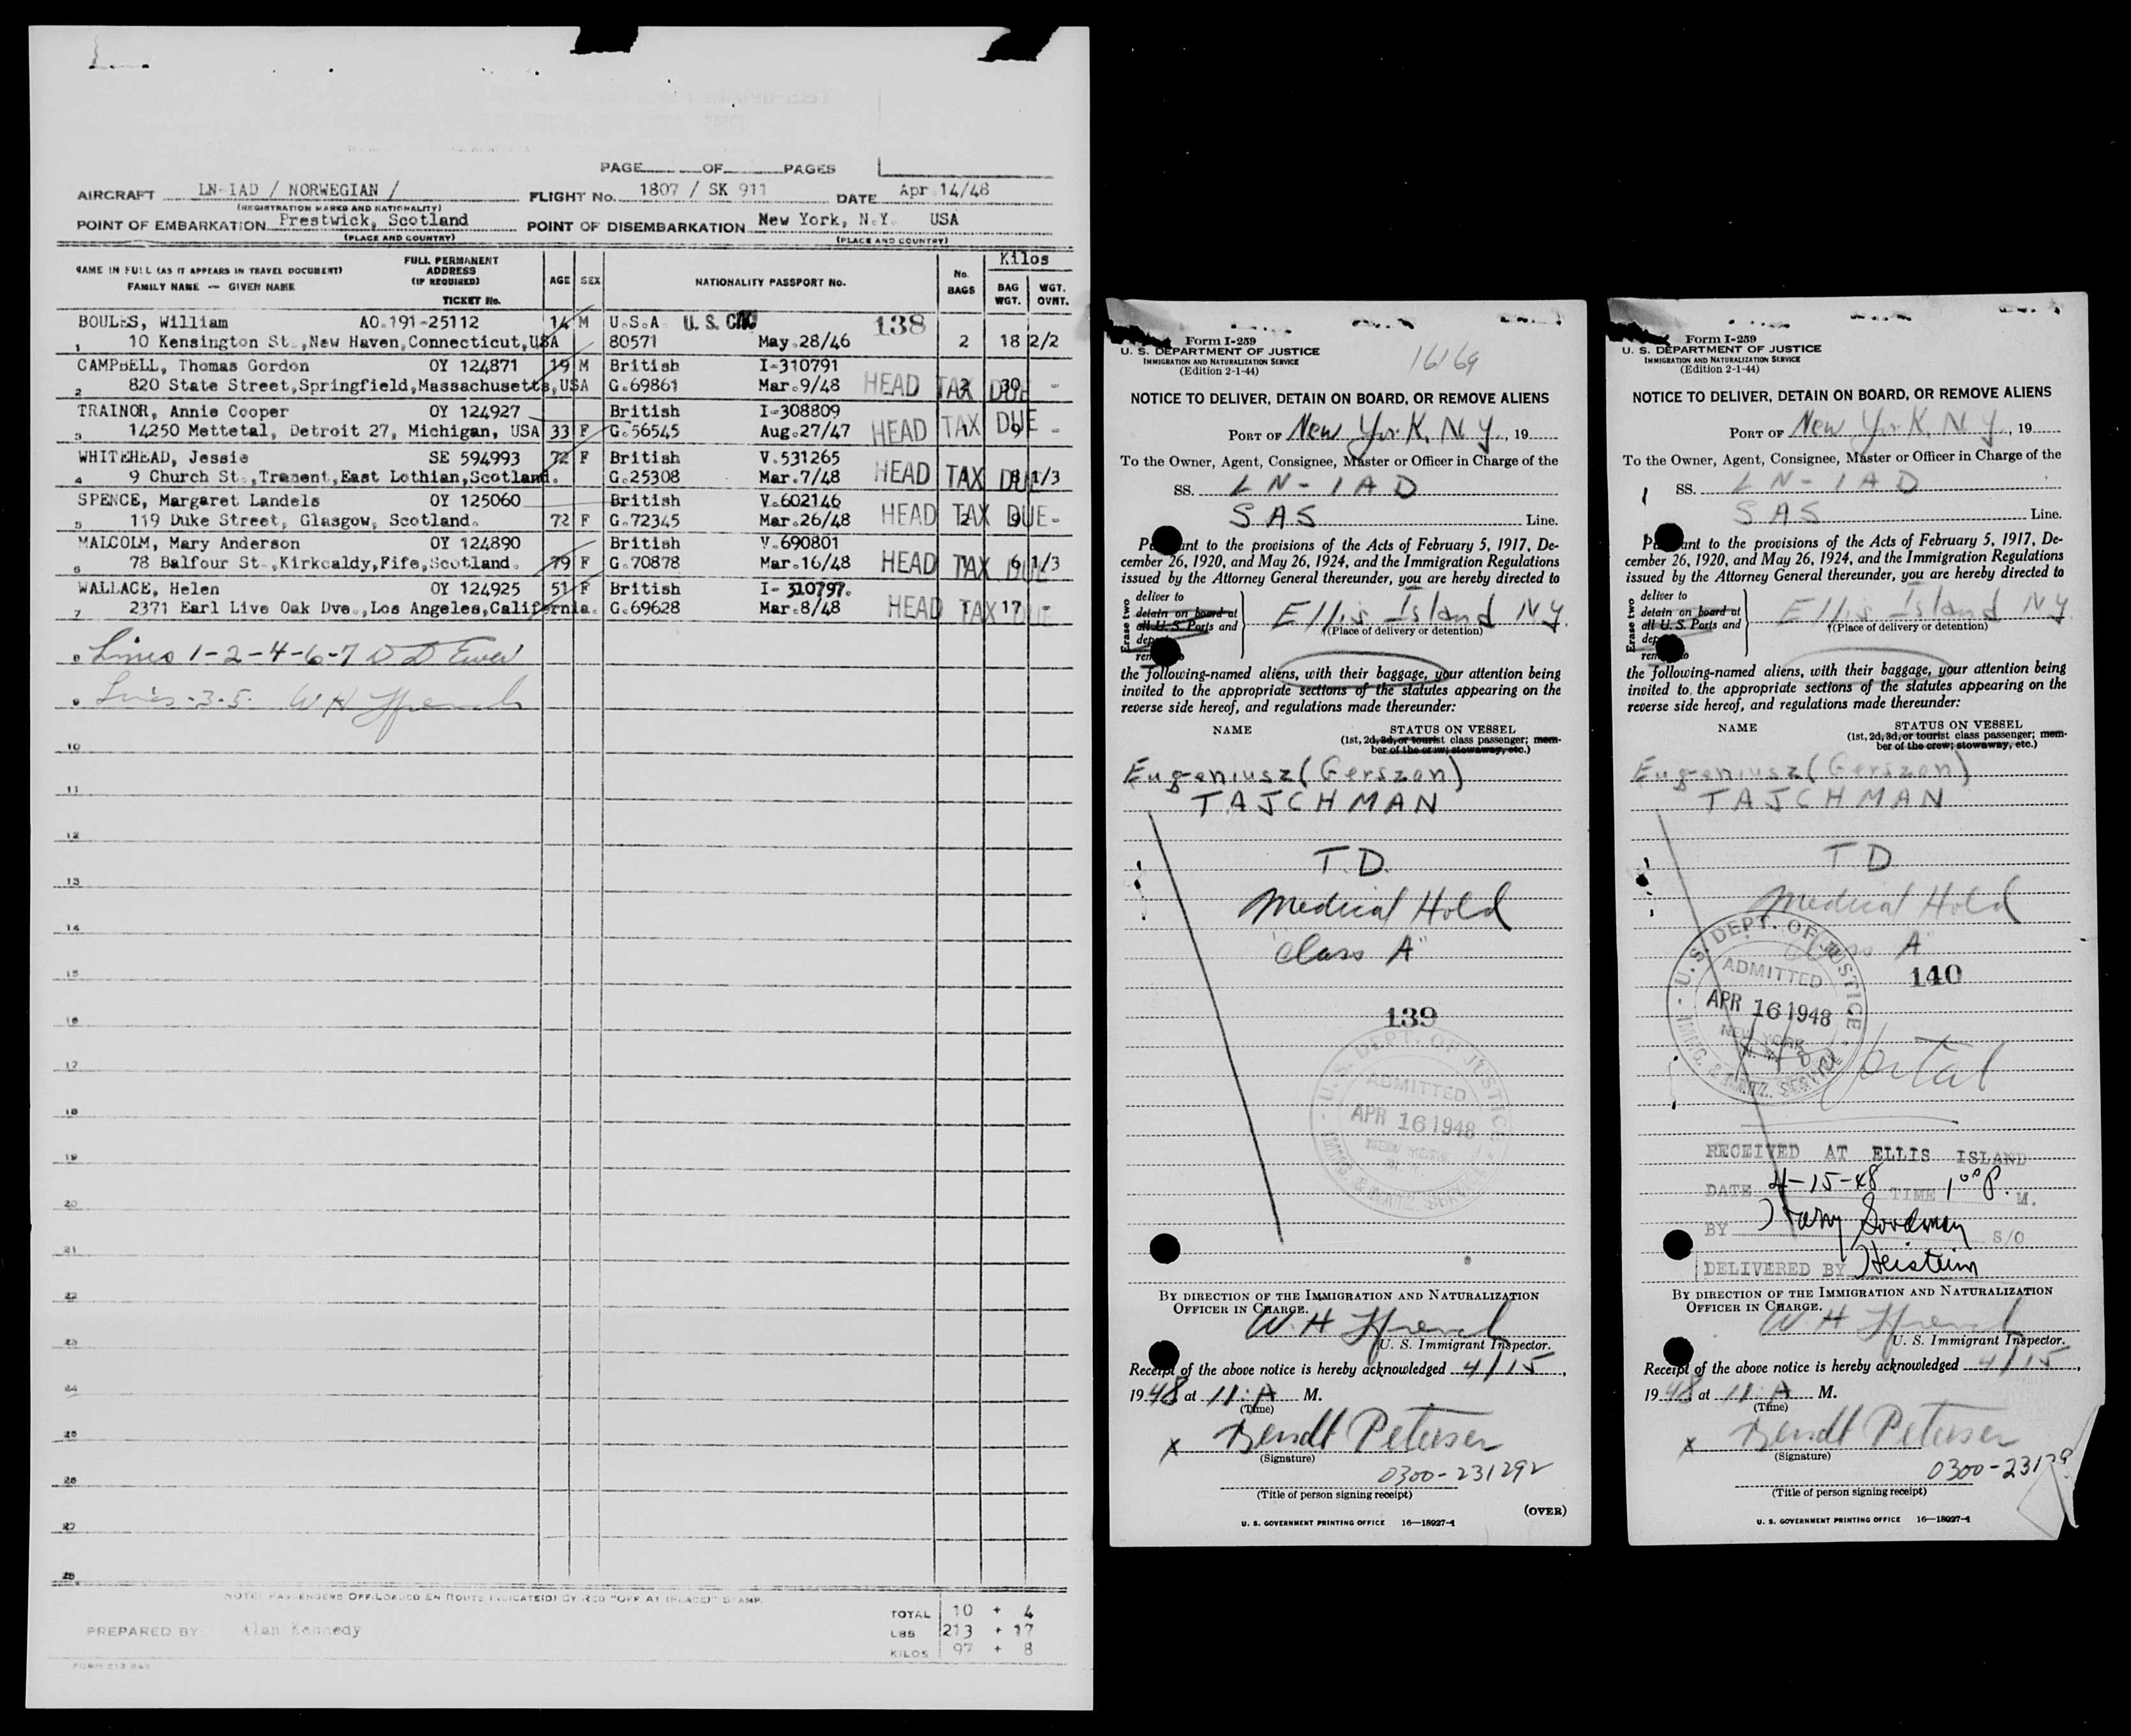 PAGE OF PAGES
AIRCRAFT LN-IAD / NORWEGIAN / FLIGHT No. 1807 / SK 911 DATE Apr 14/48
(REGISTRATION MARKS AND NATIONALITY)
POINT OF EMBARKATION Prestwick, Scotland POINT OF DISEMBARKATION New York, N.Y. USA
(PLACE AND COUNTRY) (PLACE AND COUNTRY)
NAME IN FULL (AS IT APPEARS IN TRAVEL DOCUMENT) FULL PERMANENT ADDRESS (IF REQUIRED) AGE SEX NATIONALITY PASSPORT No. No. BAGS Kilos
FAMILY NAME — GIVEN NAME TICKET No. BAG WGT. WGT. OVWT.
BOULES, William AO.191-25112 14 M U.S.A. U.S. CIT 138
1 10 Kensington St.,New Haven,Connecticut,USA 80571 May.28/46 2 18 2/2
CAMPBELL, Thomas Gordon OY 124871 19 M British I-310791
2 820 State Street,Springfield,Massachusetts,USA G.69861 Mar.9/48 HEAD TAX DUE 2 30 -
TRAINOR, Annie Cooper OY 124927 British I-308809
3 14250 Mettetal, Detroit 27, Michigan, USA 33 F G.56545 Aug.27/47 HEAD TAX DUE 1 9 -
WHITEHEAD, Jessie SE 594993 72 F British V.531265
4 9 Church St.,Tranent,East Lothian,Scotland. G.25308 Mar.7/48 HEAD TAX DUE 8 1/3
SPENCE, Margaret Landels OY 125060 British V.602146
5 119 Duke Street, Glasgow, Scotland. 72 F G.72345 Mar.26/48 HEAD TAX DUE 2 9 -
MALCOLM, Mary Anderson OY 124890 British V.690801
6 78 Balfour St.,Kirkcaldy,Fife,Scotland. 79 F G.70878 Mar.16/48 HEAD TAX DUE 6 1/3
WALLACE, Helen OY 124925 51 F British I-310797.
7 2371 Earl Live Oak Dve.,Los Angeles,California. G.69628 Mar.8/48 HEAD TAX DUE 1 17 -
8 Lines 1-2-4-6-7 D D
9 Lines-3-5. W H Ffrench
10
11
12
13
14
15
16
17
18
19
20
21
22
23
24
25
26
27
28
NOTE: PASSENGERS OFF-LOADED EN ROUTE INDICATE(D) BY RED "OFF AT (PLACE)" STAMP.
TOTAL 10 + 4
PREPARED BY: Alan Kennedy LBS 213 + 17
KILOS 97 + 8
Form I-259
U. S. DEPARTMENT OF JUSTICE
IMMIGRATION AND NATURALIZATION SERVICE
(Edition 2-1-44)
16169
NOTICE TO DELIVER, DETAIN ON BOARD, OR REMOVE ALIENS
PORT OF New York, N.Y., 19
To the Owner, Agent, Consignee, Master or Officer in Charge of the
SS. LN-IAD
SAS Line.
Pursuant to the provisions of the Acts of February 5, 1917, De-
cember 26, 1920, and May 26, 1924, and the Immigration Regulations
issued by the Attorney General thereunder, you are hereby directed to
Erase two
deliver to
detain on board at
all U. S. Ports and
Ellis Island NY.
(Place of delivery or detention)
the following-named aliens, with their baggage, your attention being
invited to the appropriate sections of the statutes appearing on the
reverse side hereof, and regulations made thereunder:
NAME STATUS ON VESSEL
(1st, 2d, 3d, or tourist class passenger; mem-
ber of the crew; stowaway, etc.)
Eugeniusz (Gerszon)
TAJCHMAN
T.D.
Medical Hold
"Class A"
139
U. S. DEPT. OF JUSTICE
ADMITTED
APR 16 1948
NEW YORK
N. Y.
IMMIG. & NATZ. SERVICE
BY DIRECTION OF THE IMMIGRATION AND NATURALIZATION
OFFICER IN CHARGE.
W. H Ffrench
U. S. Immigrant Inspector.
Receipt of the above notice is hereby acknowledged 4/15,
1948 at 11: A M.
(Time)
x Bendt Petersen
(Signature)
0300-231292
(Title of person signing receipt)
(OVER)
U. S. GOVERNMENT PRINTING OFFICE 16—18027-1
Form I-259
U. S. DEPARTMENT OF JUSTICE
IMMIGRATION AND NATURALIZATION SERVICE
(Edition 2-1-44)
NOTICE TO DELIVER, DETAIN ON BOARD, OR REMOVE ALIENS
PORT OF New York, N.Y., 19
To the Owner, Agent, Consignee, Master or Officer in Charge of the
SS. LN-IAD
SAS Line.
Pursuant to the provisions of the Acts of February 5, 1917, De-
cember 26, 1920, and May 26, 1924, and the Immigration Regulations
issued by the Attorney General thereunder, you are hereby directed to
Erase two
deliver to
detain on board at
all U. S. Ports and
Ellis Island NY
(Place of delivery or detention)
the following-named aliens, with their baggage, your attention being
invited to the appropriate sections of the statutes appearing on the
reverse side hereof, and regulations made thereunder:
NAME STATUS ON VESSEL
(1st, 2d, 3d, or tourist class passenger; mem-
ber of the crew; stowaway, etc.)
Eugeniusz (Gerszon)
TAJCHMAN
T D
Medical Hold
Class A"
140
U. S. DEPT. OF JUSTICE
ADMITTED
APR 16 1948
NEW YORK
N. Y.
IMMIG. & NATZ. SERVICE
Hospital
RECEIVED AT ELLIS ISLAND
DATE 4-15-48 TIME 1:00 P. M.
BY Harry Goodman S/O
DELIVERED BY Heistein
BY DIRECTION OF THE IMMIGRATION AND NATURALIZATION
OFFICER IN CHARGE.
W. H Ffrench
U. S. Immigrant Inspector.
Receipt of the above notice is hereby acknowledged 4/15,
1948 at 11 A M.
(Time)
x Bendt Petersen
(Signature)
0300-23129
(Title of person signing receipt)
U. S. GOVERNMENT PRINTING OFFICE 16—18027-1